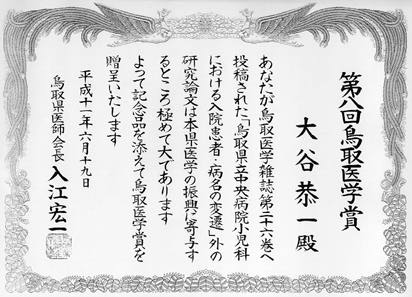 第八回鳥取医学賞
大谷恭一殿
あなたが鳥取医学雑誌第二十六巻へ
投稿された「鳥取県立中央病院小児科
における入院患者・病名の変遷」外の
研究論文は本県医学の振興に寄与す
るところ極めて大であります
よって記念品を添えて鳥取医学賞を
贈呈いたします
平成十一年六月十九日
鳥取県医師会長 入江宏一